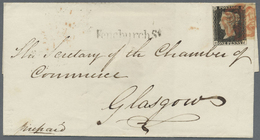 Fenchurch St
The Secretary of the Chamber of
Commerce
Glasgow
Prepaid